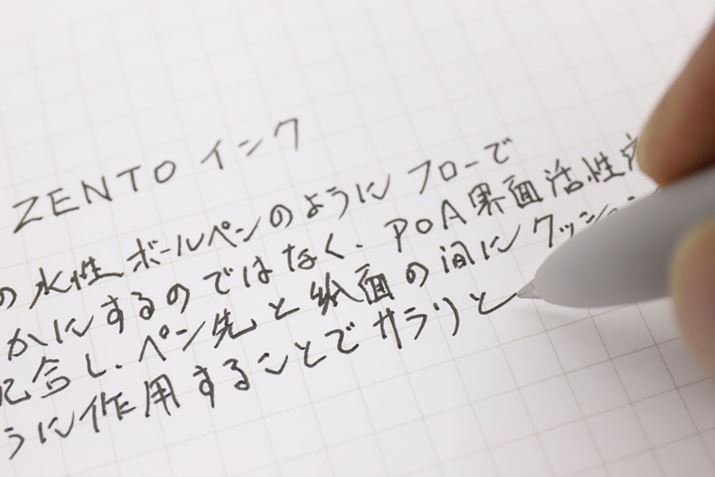 ZENTO インク
の水性ボールペンのようにフローで
かにするのではなく、POA界面活性
配合し、ペン先と紙面の間にクッショ
うに作用することでサラリと